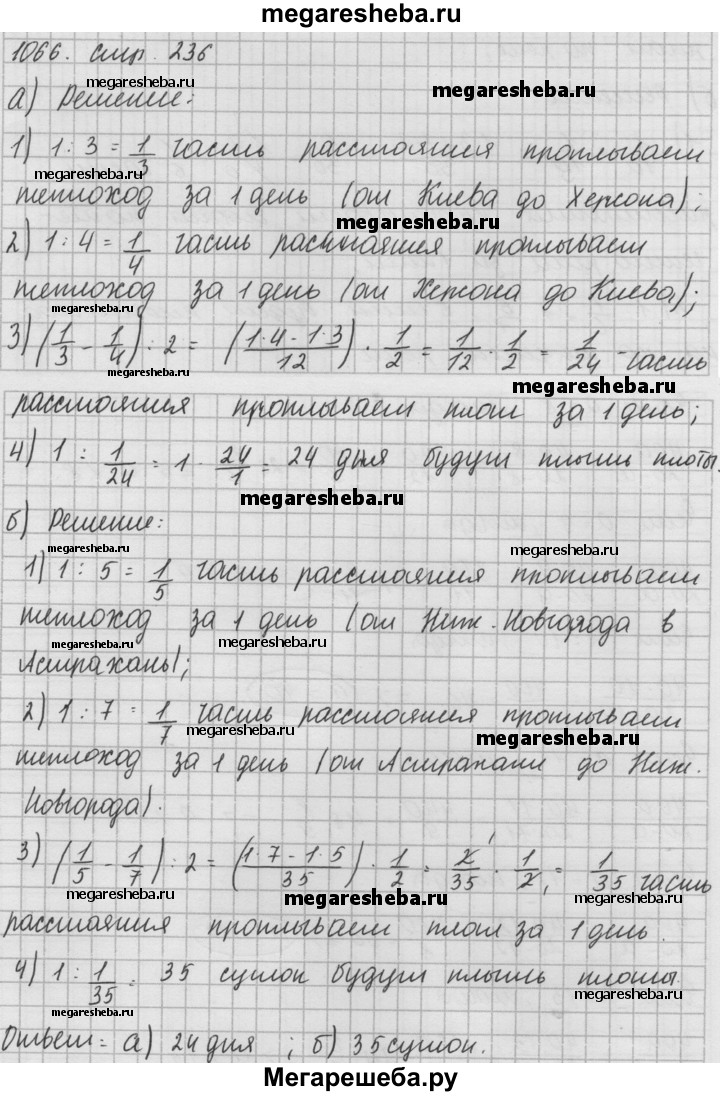 megaresheba.ru
1066. стр. 236
megaresheba.ru
а) Решение:
megaresheba.ru
1) 1 : 3 = 1/3 часть расстояния проплывает
megaresheba.ru
теплоход за 1 день (от Киева до Херсона);
megaresheba.ru
2) 1 : 4 = 1/4 часть расстояния проплывает
теплоход за 1 день (от Херсона до Киева);
3) (1/3 - 1/4) : 2 = ((1·4 - 1·3)/12) · 1/2 = 1/12 · 1/2 = 1/24 часть
megaresheba.ru
megaresheba.ru
расстояния проплывает плот за 1 день;
4) 1 : 1/24 = 1 · 24/1 = 24 дня будут плыть плоты.
megaresheba.ru
б) Решение:
megaresheba.ru
megaresheba.ru
1) 1 : 5 = 1/5 часть расстояния проплывает
теплоход за 1 день (от Ниж. Новгорода в
megaresheba.ru
megaresheba.ru
Астрахань);
2) 1 : 7 = 1/7 часть расстояния проплывает
megaresheba.ru
megaresheba.ru
теплоход за 1 день (от Астрахани до Ниж.
Новгорода).
3) (1/5 - 1/7) : 2 = ((1·7 - 1·5)/35) · 1/2 = 2/35 · 1/2 = 1/35 часть
megaresheba.ru
megaresheba.ru
megaresheba.ru
расстояния проплывает плот за 1 день.
4) 1 : 1/35 = 35 суток будут плыть плоты.
megaresheba.ru
megaresheba.ru
Ответ: а) 24 дня ; б) 35 суток.
Мегарешеба.ру